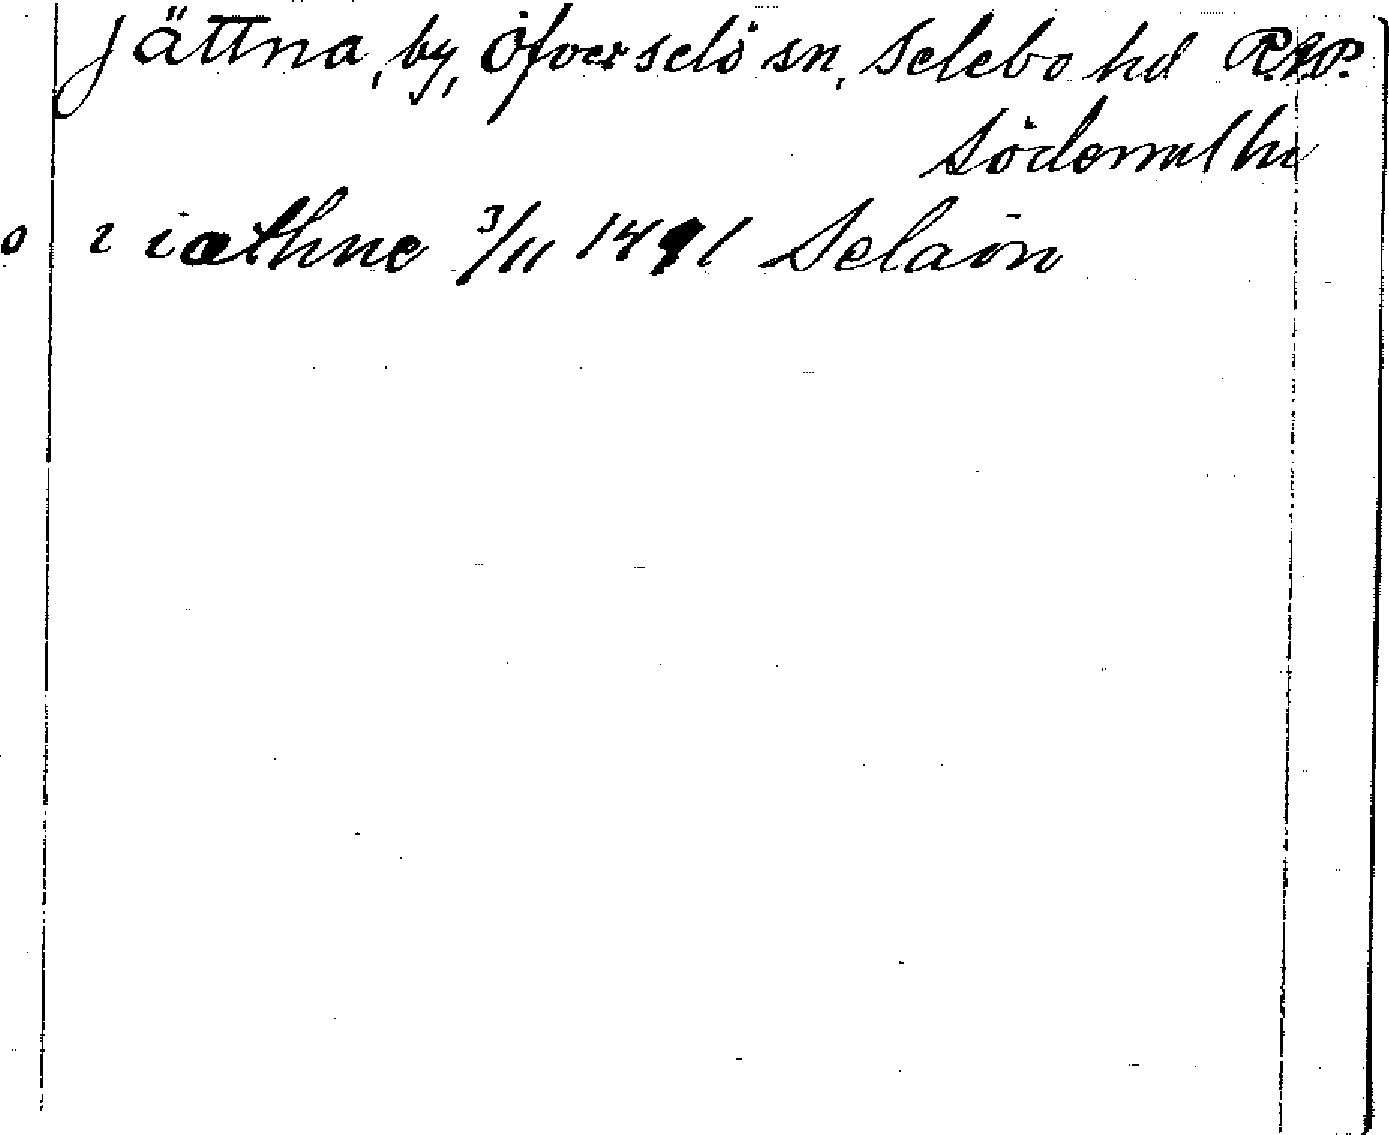 Jättna, by, Öfverselö sn, Selebo hd R.A.P.
Söderml
o i iæthne 3/11 1491 Selaön